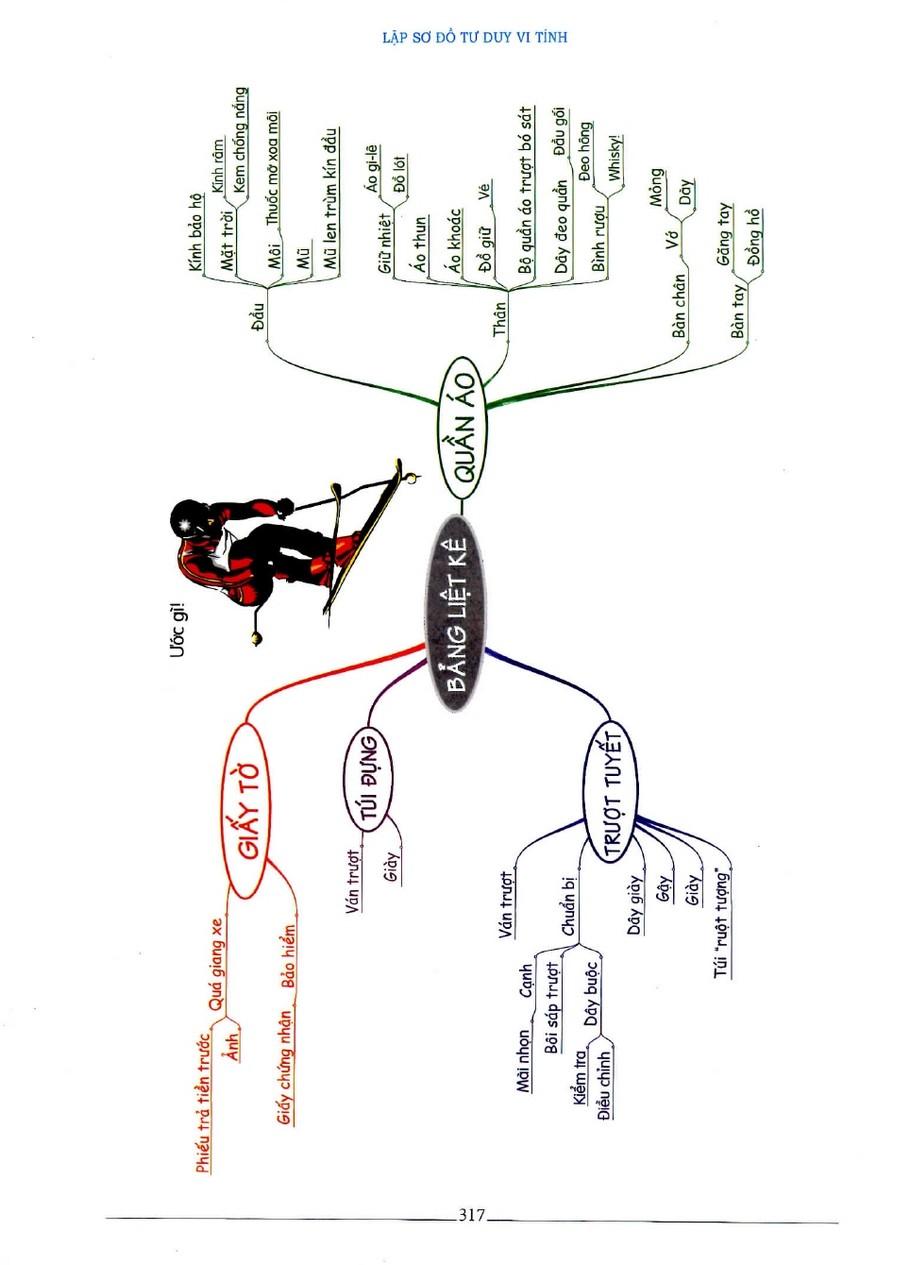 LẬP SƠ ĐỒ TƯ DUY VI TÍNH
Ước gì!
BẢNG LIỆT KÊ
QUẦN ÁO
Đầu
Kính bảo hộ
Mặt trời
Kính râm
Kem chống nắng
Môi
Thuốc mỡ xoa môi
Mũ
Mũ len trùm kín đầu
Thân
Giữ nhiệt
Áo gi-lê
Đồ lót
Áo thun
Áo khoác
Đồ giữ
Vé
Bộ quần áo trượt bó sát
Dây đeo quần
Đầu gối
Bình rượu
Đeo hông
Whisky!
Bàn chân
Vớ
Mỏng
Dày
Bàn tay
Găng tay
Đồng hồ
GIẤY TỜ
Quá giang xe
Phiếu trả tiền trước
Ảnh
Bảo hiểm
Giấy chứng nhận
TÚI ĐỰNG
Ván trượt
Giày
TRƯỢT TUYẾT
Ván trượt
Chuẩn bị
Cạnh
Mài nhọn
Bôi sáp trượt
Dây buộc
Kiểm tra
Điều chỉnh
Dây giày
Gậy
Giày
Túi "ruột tượng"
317